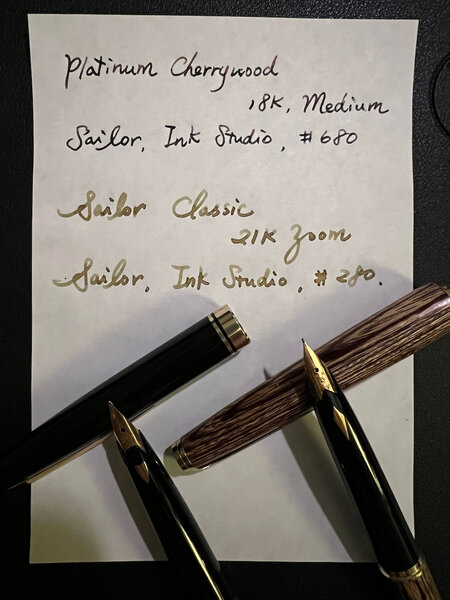 Platinum Cherrywood
18K, Medium
Sailor, Ink Studio, #680
Sailor Classic
21K Zoom
Sailor, Ink Studio, #280.